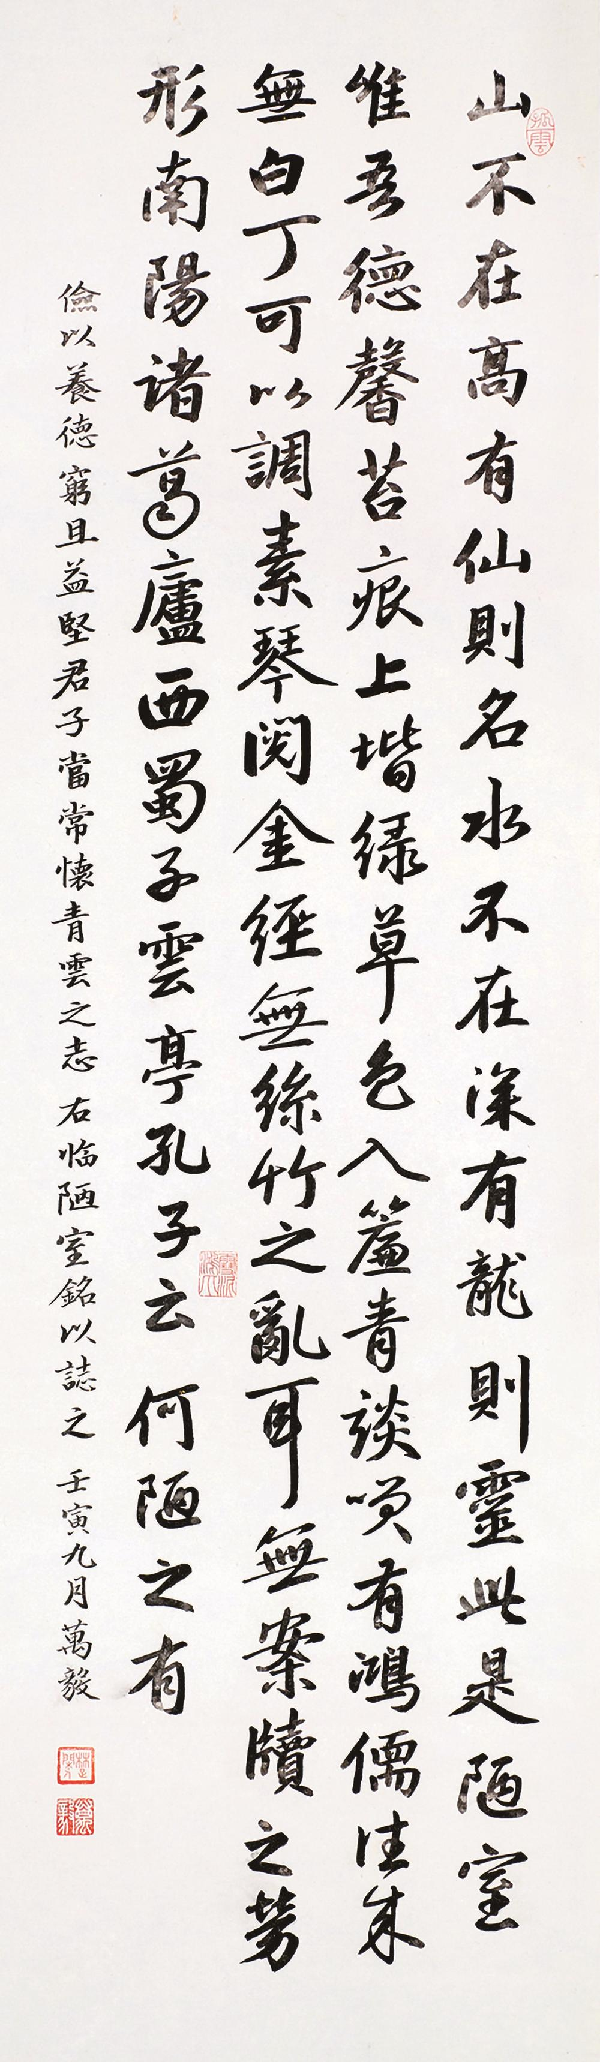 山不在高有仙則名水不在深有龍則靈此是陋室
唯吾德馨苔痕上堦緑草色入簾青談笑有鴻儒往来
無白丁可以調素琴閱金經無絲竹之亂耳無案牘之劳
形南陽诸葛廬西蜀子雲亭孔子云何陋之有
儉以養德窮且益堅君子當常懷青雲之志右临陋室銘以誌之壬寅九月萬毅